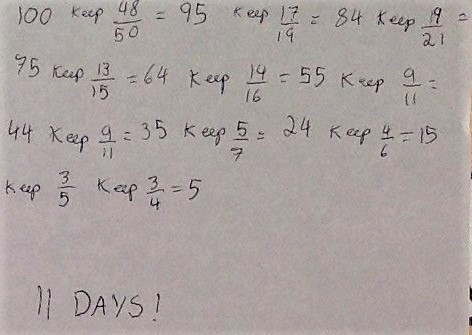 100 Keep 48/50 = 95 Keep 17/19 = 84 Keep 19/21 =
75 Keep 13/15 = 64 Keep 14/16 = 55 Keep 9/11 =
44 Keep 9/11 = 35 Keep 5/7 = 24 Keep 4/6 = 15
Keep 3/5 Keep 3/4 = 5
11 DAYS!